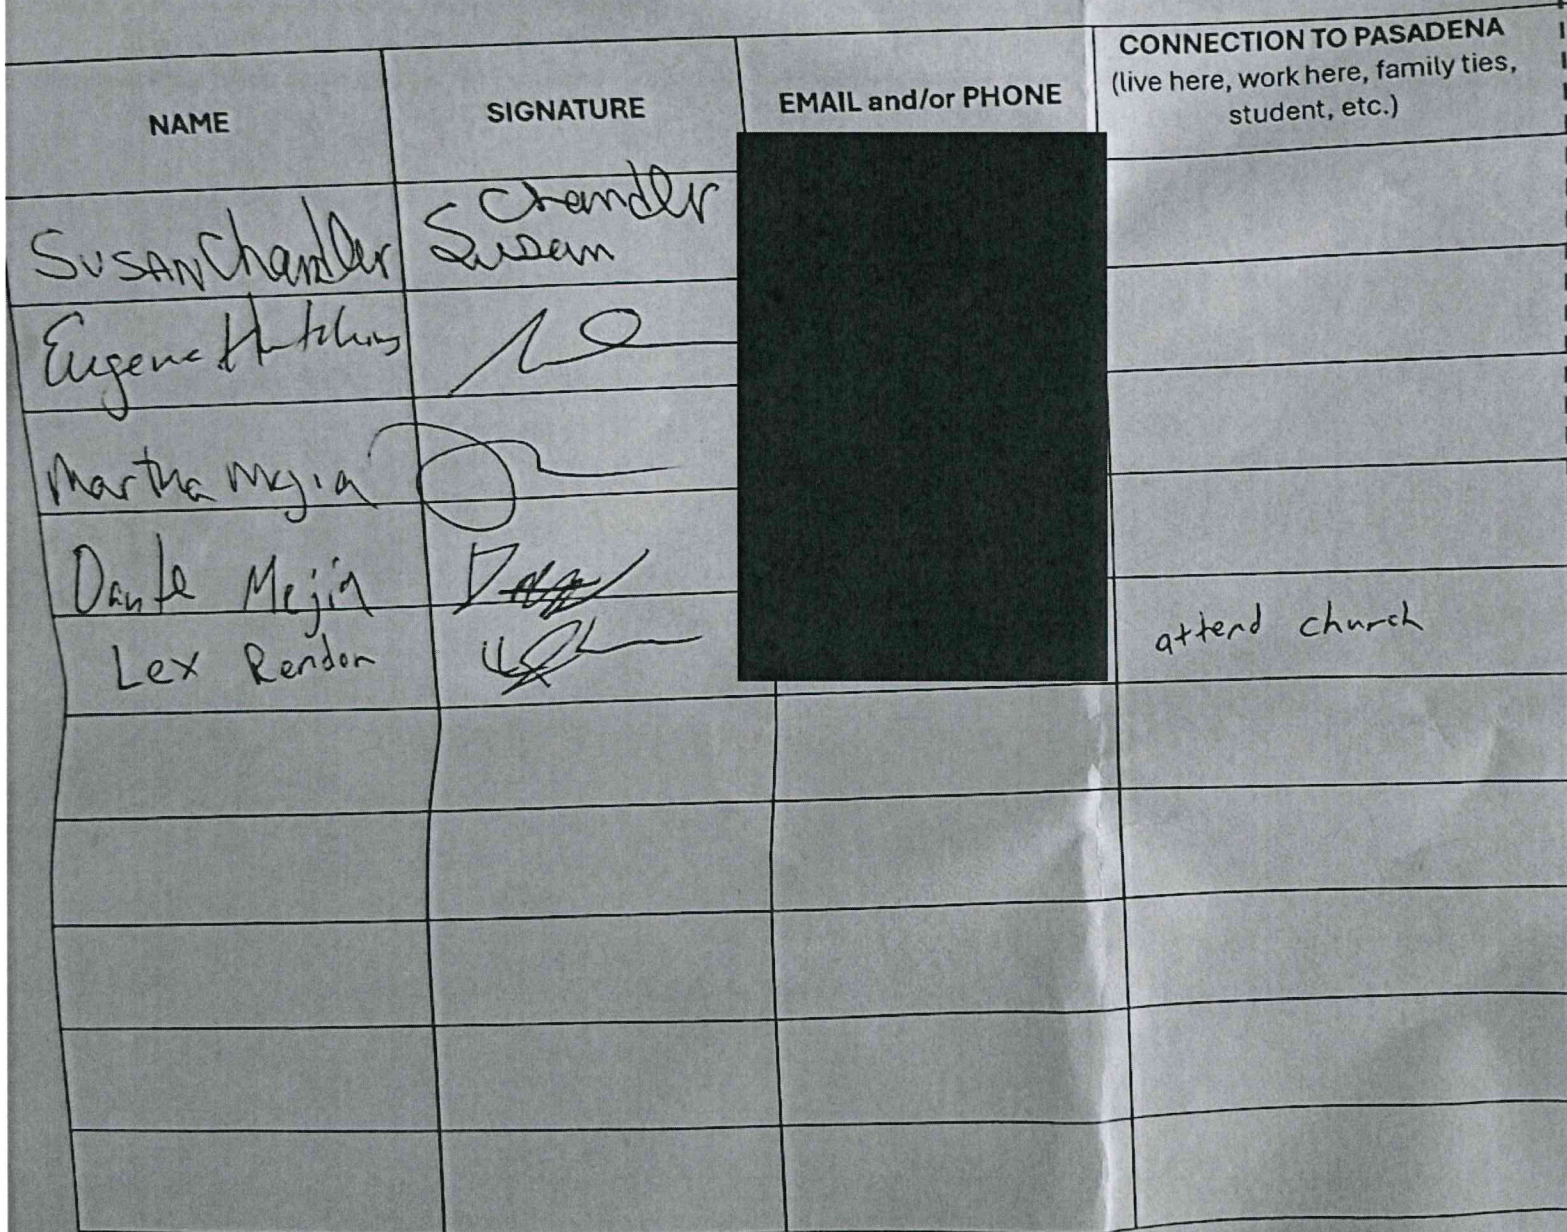 NAME
SIGNATURE
EMAIL and/or PHONE
CONNECTION TO PASADENA
(live here, work here, family ties,
student, etc.)
SUSAN Chandler
Chandler
Susan
Eugene Hutchins
Martha Mejia
Dante Mejia
Lex Rendon
attend church